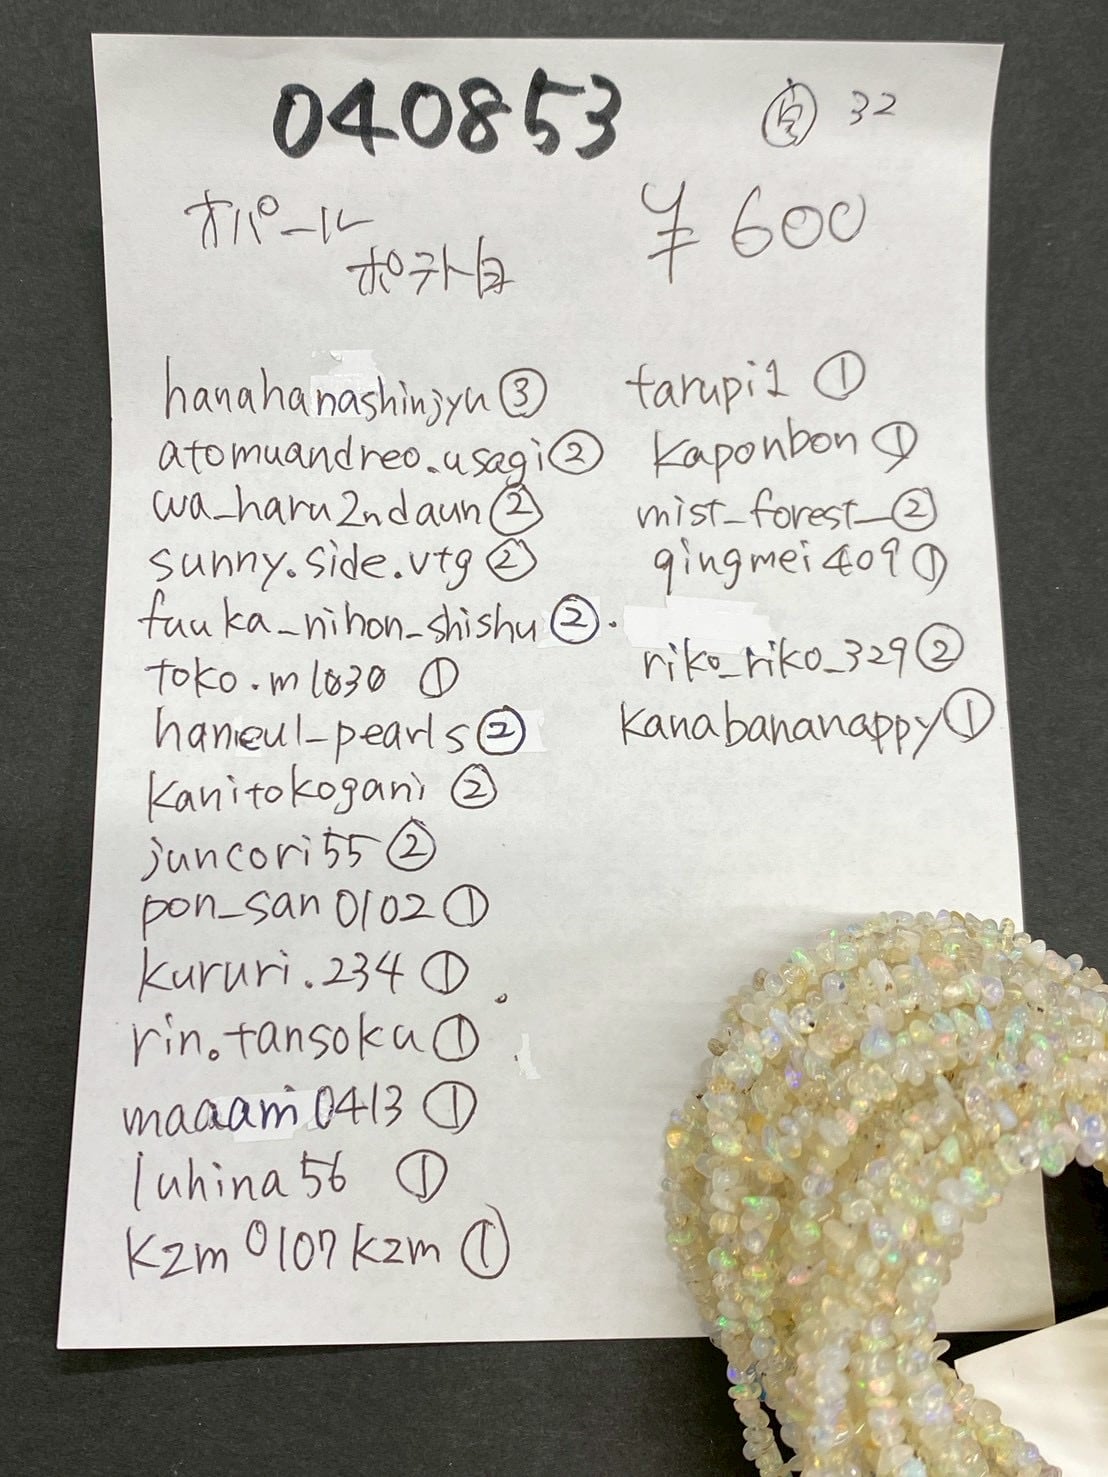 040853
32
オパール
ポテト白
¥600
hanahanashinjyu ③
atomuandreo.usagi ②
wa_haru2ndaun ②
sunny.side.vtg ②
fuuka_nihon_shishu ②
toko.m1030 ①
haneul_pearls ②
kanitokogani ②
juncori55 ②
pon_san0102 ①
kururi.234 ①
rin.tansoku ①
maaami0413 ①
luhina56 ①
kzm0107kzm ①
tarupi1 ①
kaponbon ①
mist_forest_ ②
qingmei409 ①
riko_riko_329 ②
kanabananappy ①